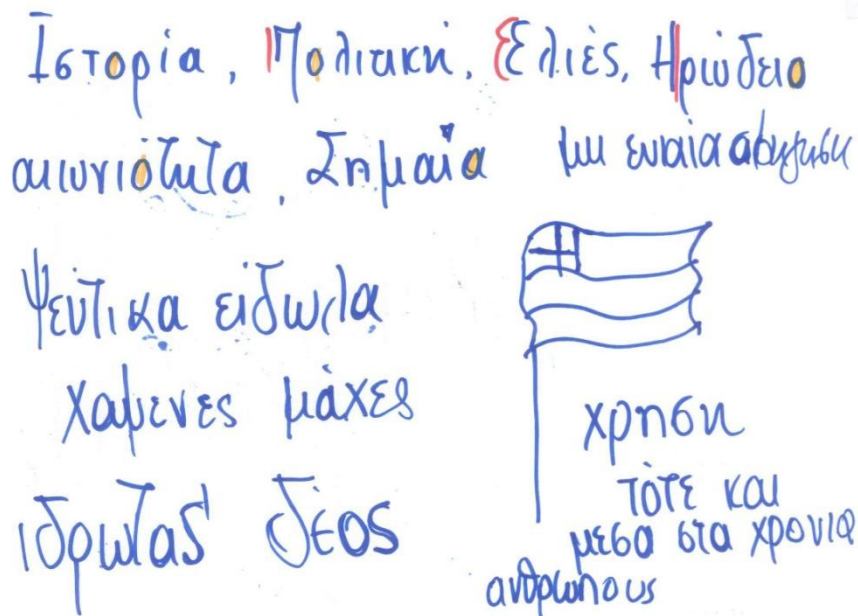 Ιστορία, Πολιτική, Ελιές, Ηρώδειο
αιωνιότητα, Σημαία
μια ενιαία αφήγηση
Ψεύτικα είδωλα
χαμενες μάχες
ιδρωτας δέος
χρηση
τότε και
μεσα στα χρονια
ανθρωπους